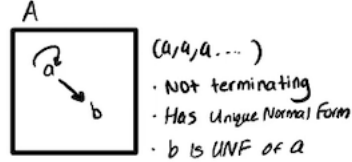 A
a
b
(a,a,a....)
· Not terminating
· Has Unique Normal Form
· b is UNF of a